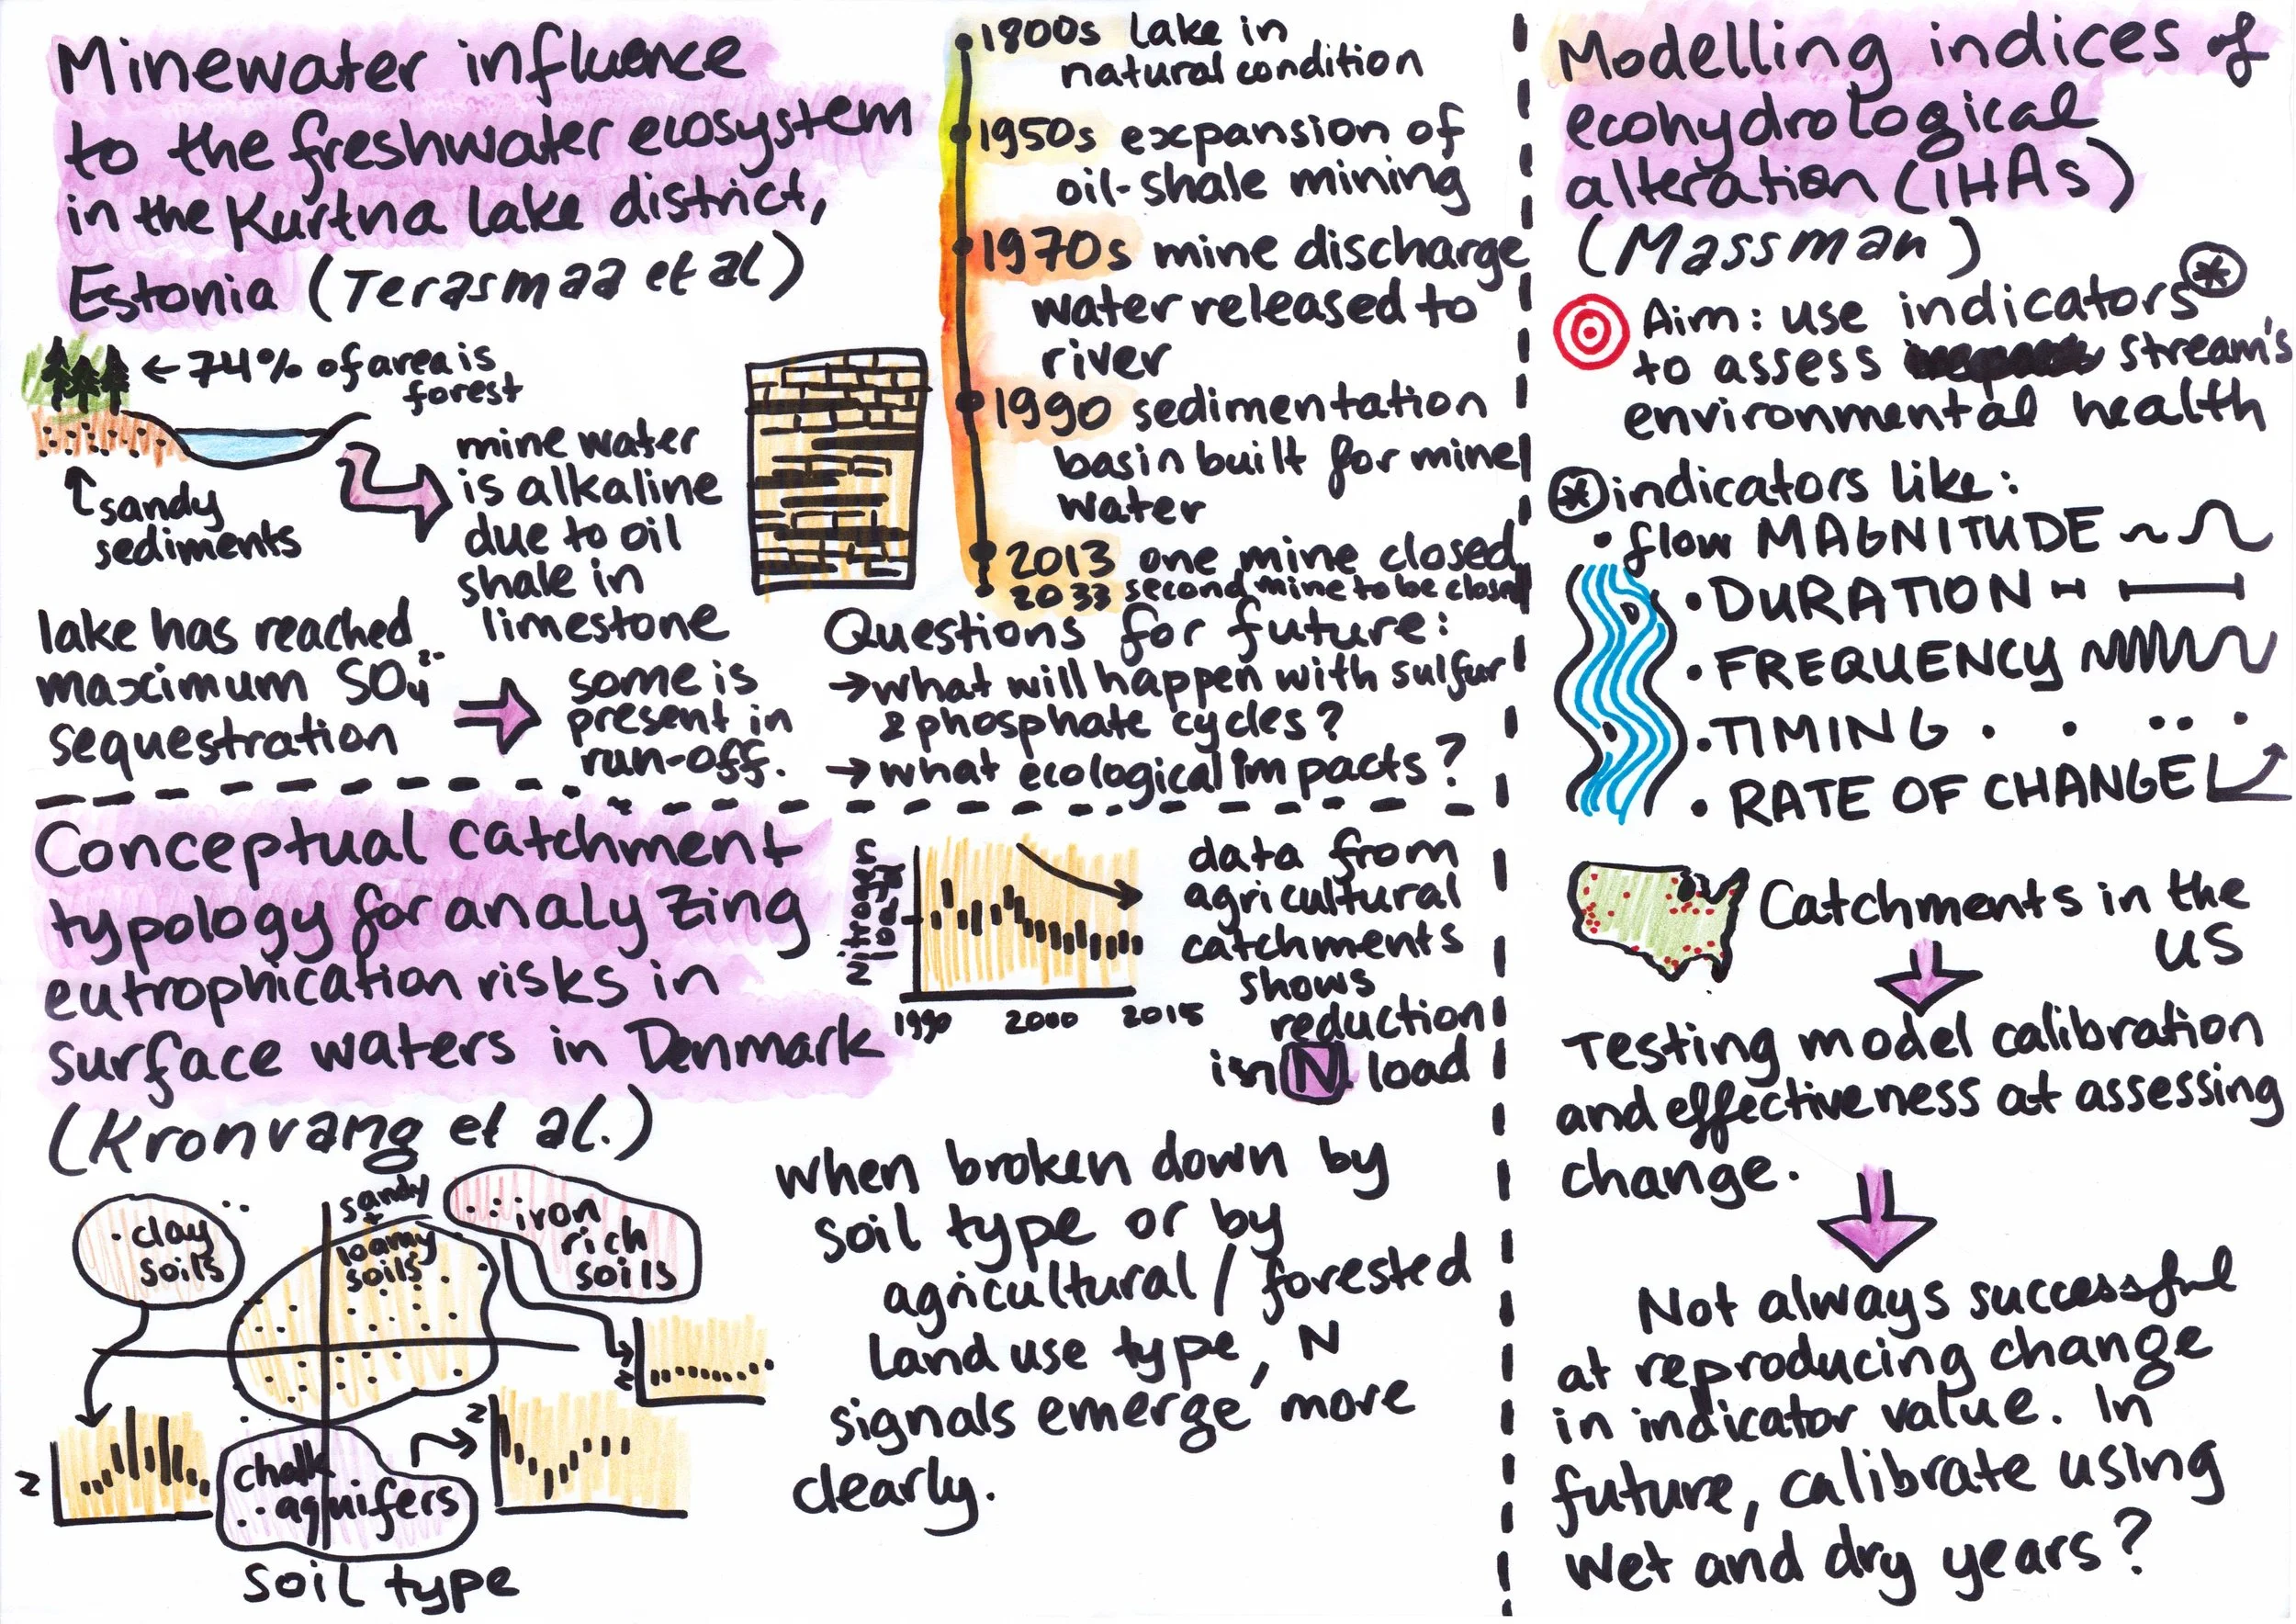 Minewater influence
to the freshwater ecosystem
in the Kurtna lake district,
Estonia (Terasmaa et al)
←74% of area is
forest
sandy
sediments
mine water
is alkaline
due to oil
shale in
limestone
lake has reached
maximum SO₄²⁻
sequestration
some is
present in
run-off.
1800s lake in
natural condition
1950s expansion of
oil-shale mining
1970s mine discharge
water released to
river
1990 sedimentation
basin built for mine
water
2013 one mine closed
2033 second mine to be closed
Questions for future:
→what will happen with sulfur
& phosphate cycles?
→what ecological impacts?
Conceptual catchment
typology for analyzing
eutrophication risks in
surface waters in Denmark
(Kronvang et al.)
Nitrogen
load
1990 2000 2015
data from
agricultural
catchments
shows
reduction
in N load
clay
soils
sandy
loamy
soils
iron
rich
soils
chalk
aquifers
N
N
N
soil type
when broken down by
soil type or by
agricultural / forested
land use type, N
signals emerge more
clearly.
Modelling indices of
ecohydrological
alteration (IHAs)
(Massman)
Aim: use indicators*
to assess stream's
environmental health
* indicators like:
• flow MAGNITUDE
• DURATION
• FREQUENCY
• TIMING
• RATE OF CHANGE
Catchments in the
US
Testing model calibration
and effectiveness at assessing
change.
Not always successful
at reproducing change
in indicator value. In
future, calibrate using
wet and dry years?